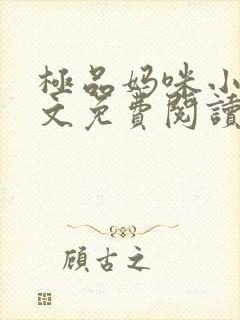 極品妈咪小
文免費閱讀
顾古之